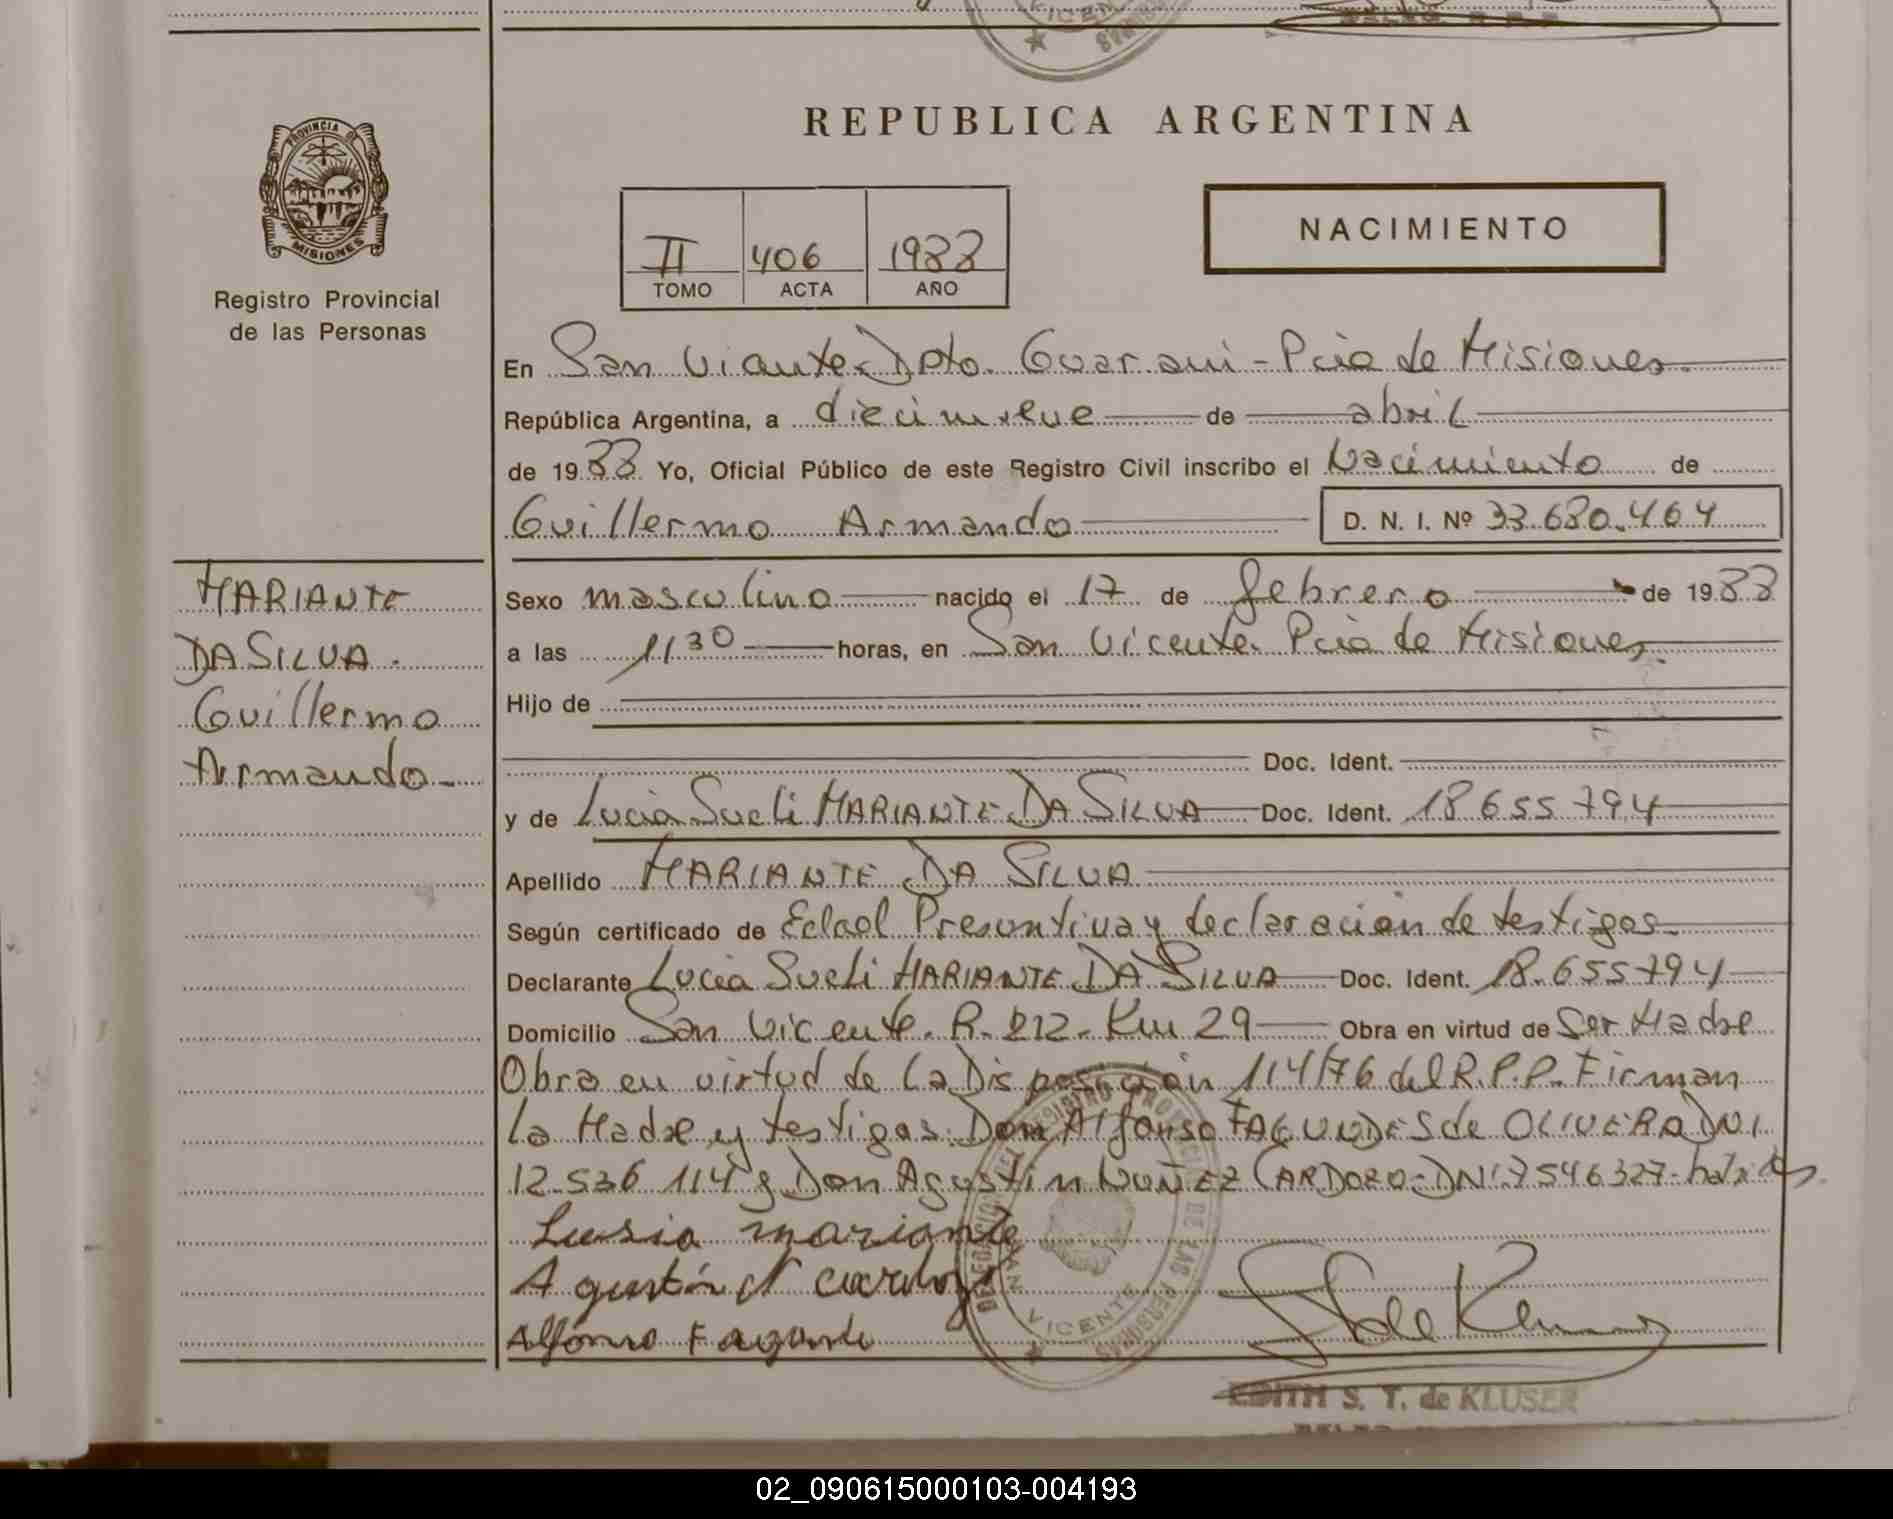 VICENTE
REPUBLICA ARGENTINA
PROVINCIA DE
MISIONES
Registro Provincial
de las Personas
NACIMIENTO
II 406 1988
TOMO ACTA AÑO
En San Vicente Dpto. Guarani - Pcia de Misiones.
República Argentina, a diecinueve de abril
de 1988 Yo, Oficial Público de este Registro Civil inscribo el Nacimiento de
Guillermo Armando D. N. I. Nº 33.680.464
MARIANTE
DA SILVA.
Guillermo
Armando
Sexo masculino nacido el 17 de febrero de 1988
a las 11 30 horas, en San Vicente. Pcia de Misiones.
Hijo de
Doc. Ident.
y de Lucia Sueli MARIANTE DA SILVA Doc. Ident. 18.655.794
Apellido MARIANTE DA SILVA
Según certificado de Edad Presuntiva y declaración de testigos.
Declarante Lucia Sueli MARIANTE DA SILVA Doc. Ident. 18.655.794
Domicilio San Vicente. R. 212. Km 29 Obra en virtud de Ser Madre
Obra en virtud de la Disposición 114/76 del R.P.P. Firman
la Madre y testigos. Don Alfonso FAGUNDES de OLIVERA DNI
12.536 114 y Don Agustin NUÑEZ CARDOZO - DNI 7546327 -
Lusia mariante
Agustín N cardozo
Alfonso Fagunde
DELEGACION DEL REGISTRO PROVINCIAL DE LAS PERSONAS
SAN VICENTE
EDITH S. T. de KLUSER
02_090615000103-004193